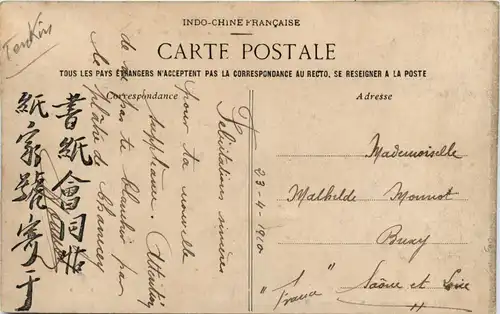 Tonkin
INDO-CHINE FRANÇAISE
CARTE POSTALE
TOUS LES PAYS ÉTRANGERS N'ACCEPTENT PAS LA CORRESPONDANCE AU RECTO, SE RESEIGNER A LA POSTE
Correspondance
Adresse
Félicitations sincères
pour ta nouvelle
suppléance. Attention
de ne pas te blanchir par
le plâtre de Chancey
書紙會同帖
紙家號寶于
23-4-1910
Mademoiselle
Mathilde Monnot
Buxy
Saône et Loire
"France"